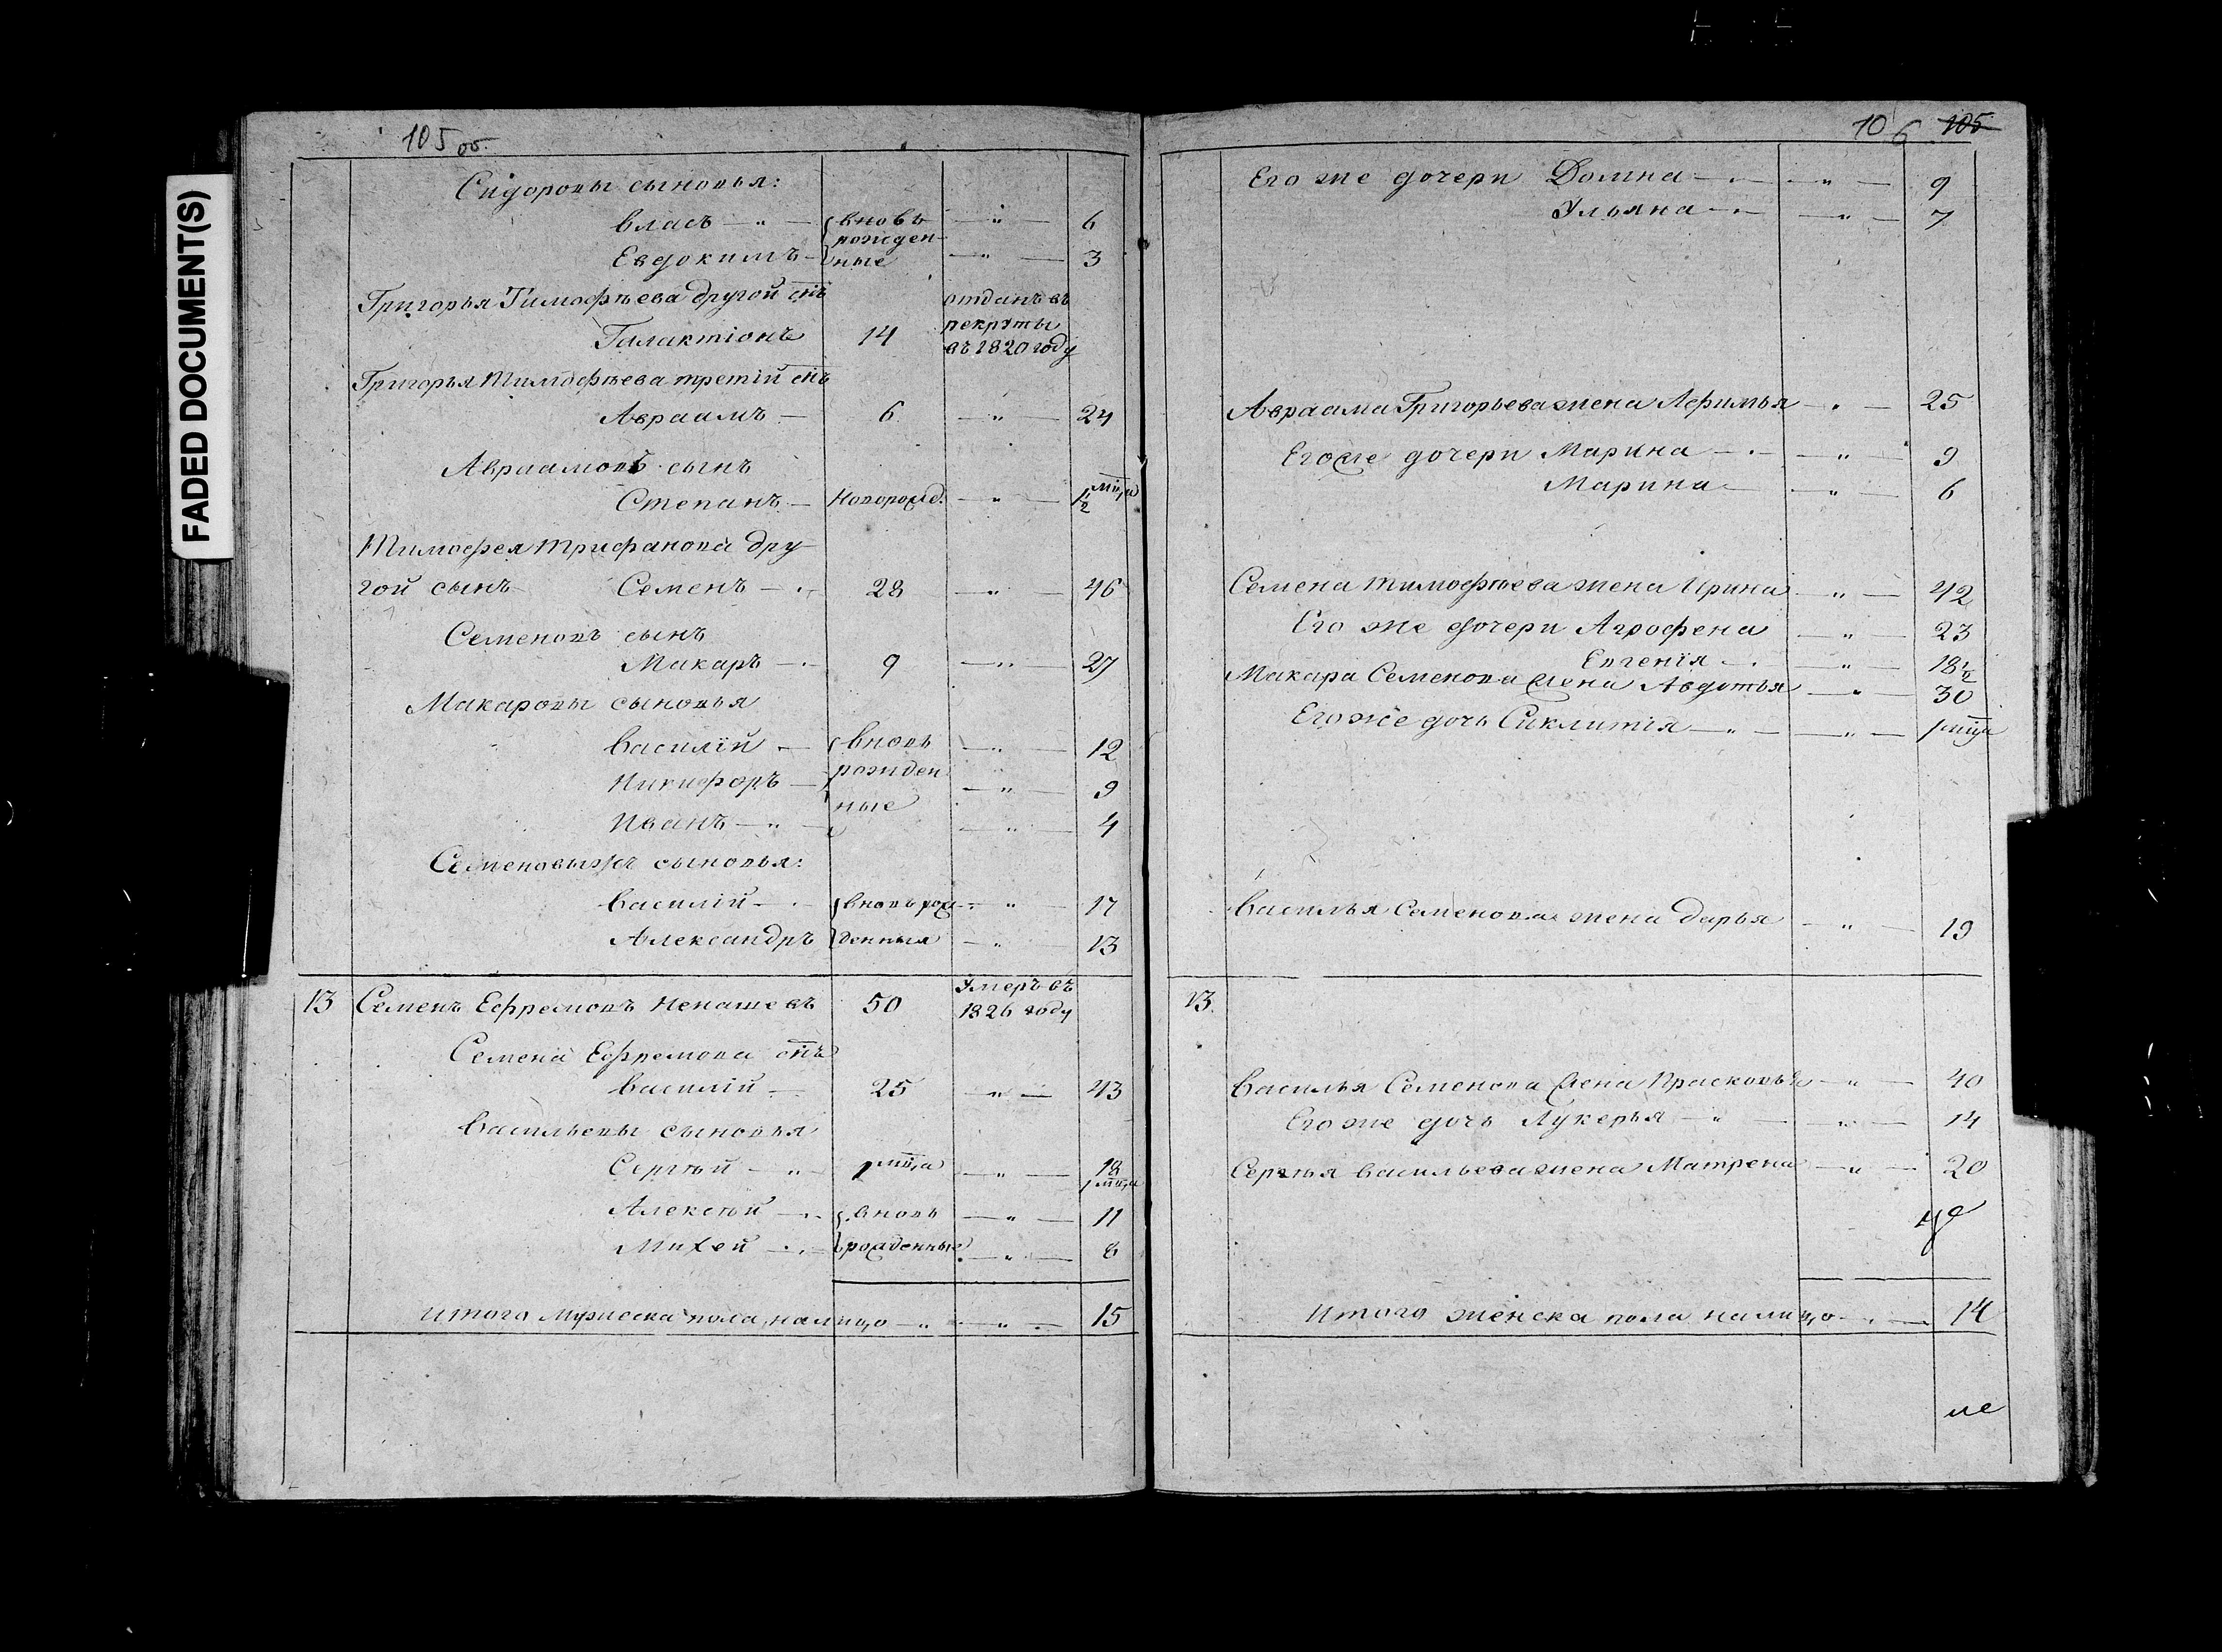 FADED DOCUMENT(S)
105 об.
Сидоровы сыновья:
Власъ — " — вновь — " — 6
рожден-
Евдокимъ — ные — " — 3
Григорья Тимофѣева другой снъ отданъ въ
Галактіонъ 14 рекруты
въ 1820 году
Григорья Тимофѣева третій снъ
Авраамъ — 6 — " — 24
Авраамовъ сынъ
Степанъ — Новорожд: — " — 1/2 мца
Тимофея Трифанова дру-
гой сынъ Семенъ — 28 — " — 46
Семеновъ сынъ
Макаръ — 9 — " — 27
Макаровы сыновья
Василій — вновь — " — 12
Никифоръ — рожден — " — 9
ные
Иванъ — " — — " — 4
Семеновы сыновья:
Василій — вновь рож — " — 17
Александръ денныя — " — 13
13 Семенъ Ефремовъ Ненашевъ 50 Умеръ въ
1826 году
Семена Ефремова снъ
Василій — 25 — " — 43
Васильевы сыновья
Сергѣй — " — 1 мца — " — 18
1 мца
Алексѣй — вновь — " — 11
Михей — рожденные — " — 8
Итого мужеска пола налицо — " — " — 15
106 105
Его же дочери Домна — " — 9
Ульяна — " — 7
Авраама Григорьева жена Афимья — " — 25
Его же дочери Марина — " — 9
Марина — " — 6
Семена Тимофѣева жена Ирина — " — 42
Его же дочери Агрофена — " — 23
Евгенія — " — 18 1/2
Макара Семенова жена Авдотья — " — 30
Его же дочь Сиклитія — " — " — 1 мца
Василья Семенова жена Дарья — " — 19
13.
Василья Семенова жена Прасковья — " — 40
Его же дочь Лукерья — " — " — 14
Сергѣя Васильева жена Матрена — " — 20
Итого женска пола налицо — 14